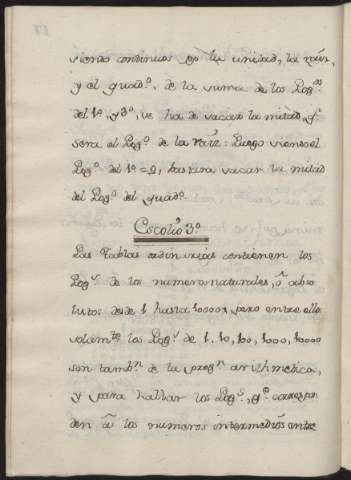 siendo continuos p.r la unidad, la raiz,
y el quad.o, de la suma de los Log.os
del 1.o, y 3.o, se ha de sacar la mitad, q.e
sera el Log.o de la raiz: Luego siendo el
Log.o del 1.o = 0, bastara sacar la mitad
del Log.o del quad.o
Escolio 3.o
Las Tablas ordinarias contienen los
Log.s de los numeros naturales, ò abso
lutos desde 1 hasta 10000, pero entre ellos
solam.te los Log.s de 1, 10, 100, 1000, 10000
son tamb.n de la prog.n arithmetica,
y para hallar los Log.s, q.e correspon
den à los numeros intermedios entre